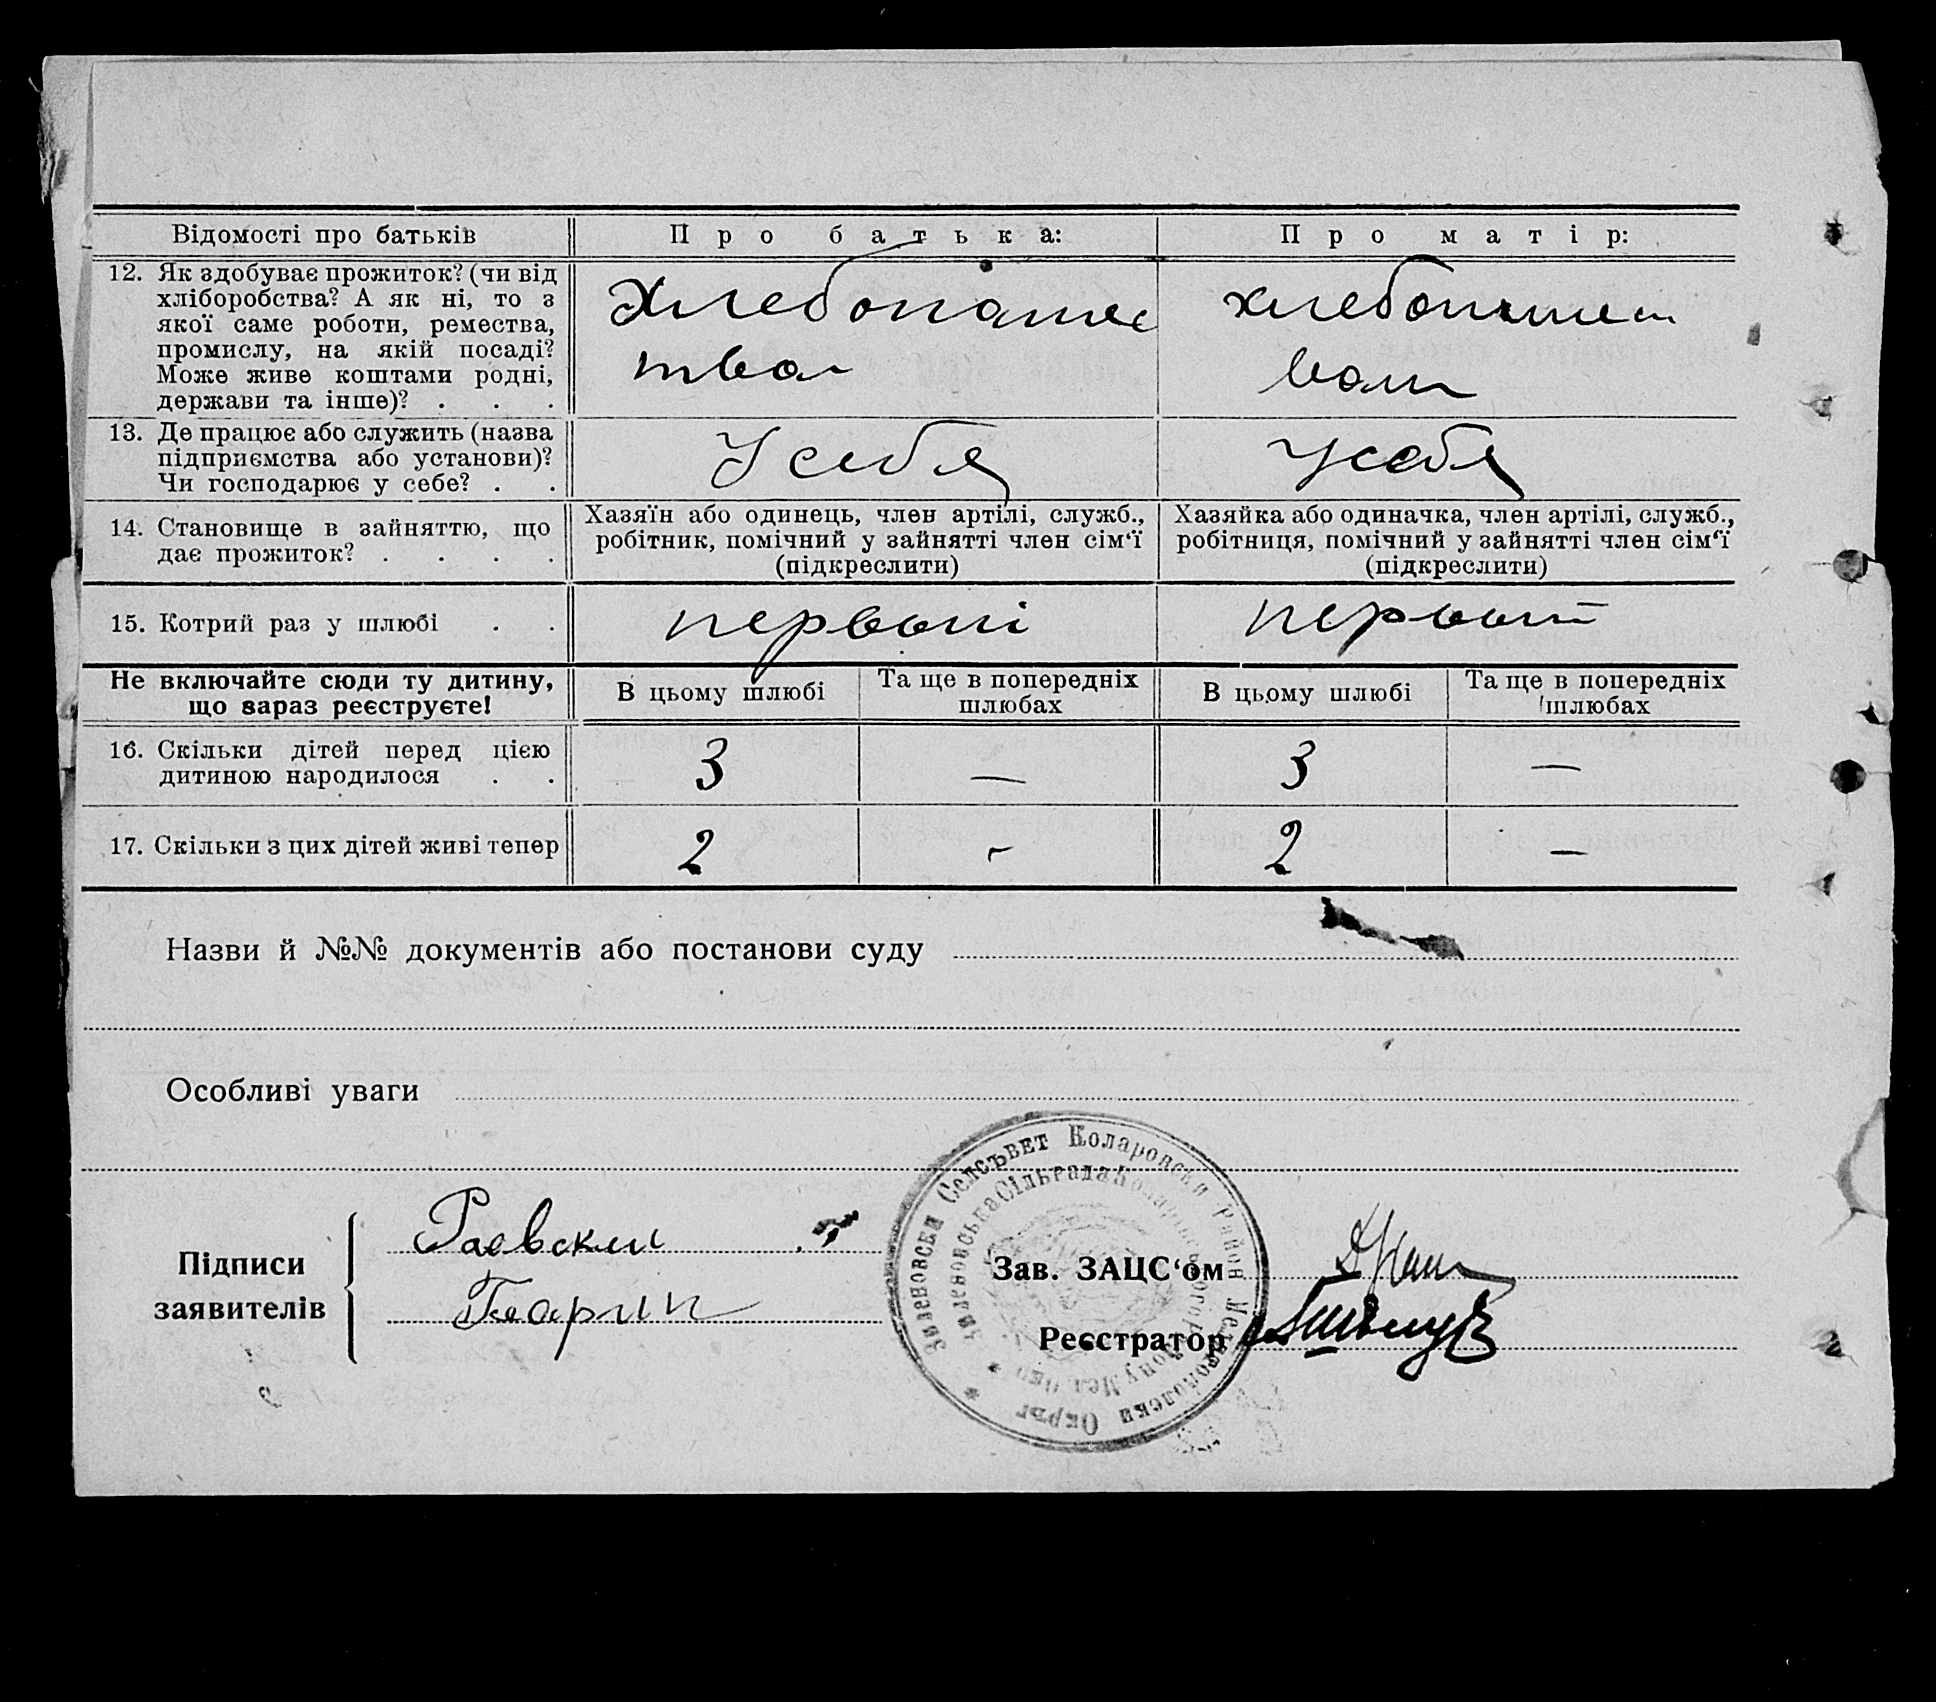 Відомості про батьків
Про батька:
Про матір:
12. Як здобуває прожиток? (чи від
хліборобства? А як ні, то з
якої саме роботи, ремества,
промислу, на якій посаді?
Може живе коштами родні,
держави та інше)? . . .
Хлебопашес
тва
хлебопашест
вам
13. Де працює або служить (назва
підприємства або установи)?
Чи господарює у себе? . .
У себя
У себя
14. Становище в зайняттю, що
дає прожиток? . . . .
Хазяїн або одинець, член артілі, служб.,
робітник, помічний у зайнятті член сім‘ї
(підкреслити)
Хазяйка або одиначка, член артілі, служб.,
робітниця, помічний у зайнятті член сім‘ї
(підкреслити)
15. Котрий раз у шлюбі . .
первоті
Не включайте сюди ту дитину,
що зараз реєструєте!
В цьому шлюбі
Та ще в попередніх
шлюбах
В цьому шлюбі
Та ще в попередніх
шлюбах
16. Скільки дітей перед цією
дитиною народилося . .
3 — 3 —
17. Скільки з цих дітей живі тепер
2 - 2 —
Назви й №№ документів або постанови суду
Особливі уваги
Підписи
заявителів
Раевски
Георги
Зав. ЗАЦС‘ом
Реєстратор
Зиленовски Селсъвет Коларовски Район Мелитополски Окръг